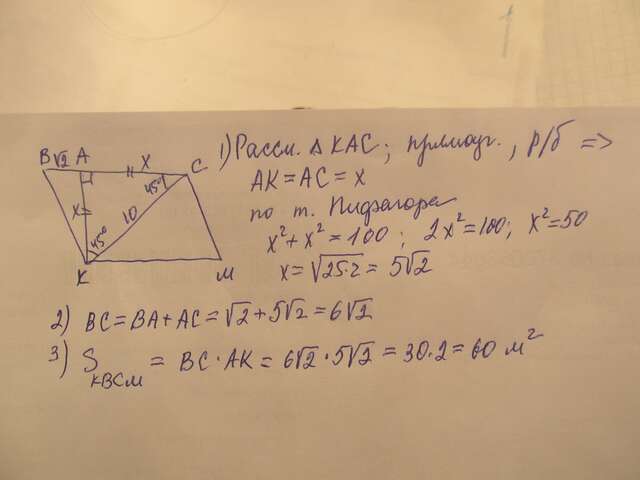 B √2 A X C
45°
X
10
45°
K M
1) Рассм. Δ KAC; прямоуг., р/б =>
AK = AC = X
по т. Пифагора
x² + x² = 100; 2x² = 100; x² = 50
x = √25·2 = 5√2
2) BC = BA + AC = √2 + 5√2 = 6√2
3) S KBCM = BC · AK = 6√2 · 5√2 = 30·2 = 60 м²